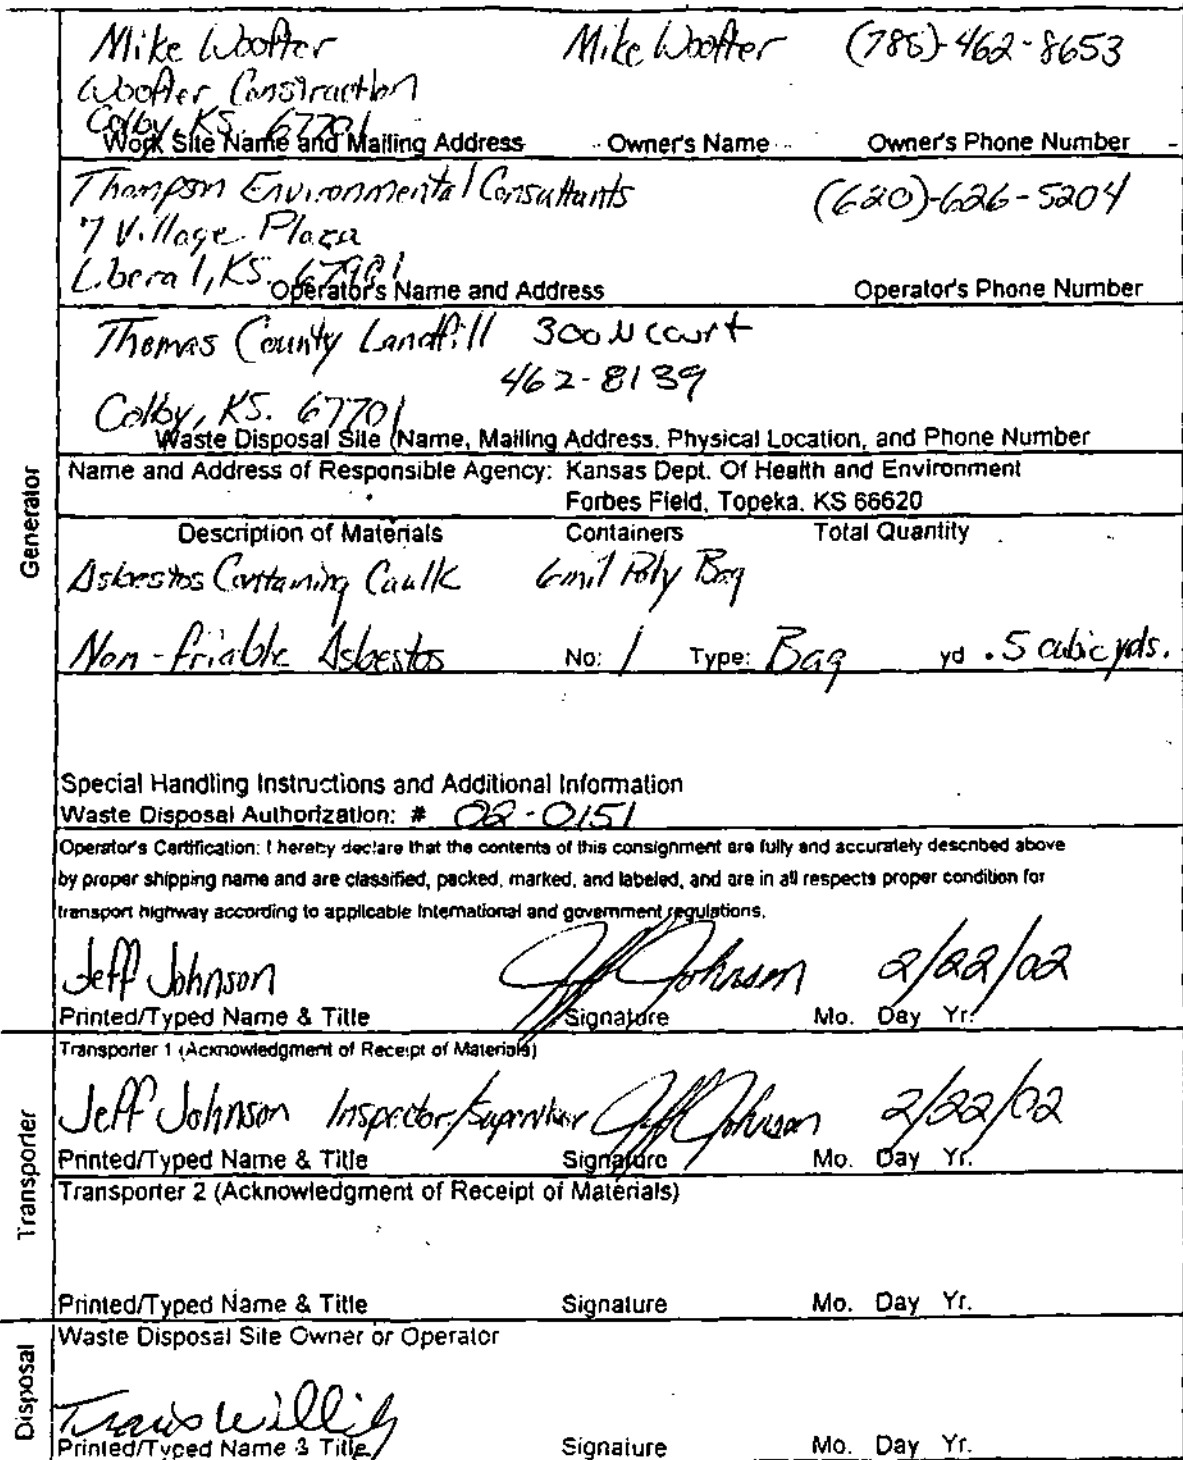 Mike Woofter Mike Woofter (785)-462-8653
Woofter Construction
Colby, KS. 67701
Work Site Name and Mailing Address Owner's Name Owner's Phone Number
Thompson Environmental Consultants (620)-626-5204
7 Village Plaza
Liberal, KS. 67901
Operator's Name and Address Operator's Phone Number
Thomas County Landfill 300 N Court
462-8139
Colby, KS. 67701
Waste Disposal Site (Name, Mailing Address, Physical Location, and Phone Number
Generator
Name and Address of Responsible Agency: Kansas Dept. Of Health and Environment
Forbes Field, Topeka, KS 66620
Description of Materials Containers Total Quantity
Asbestos Containing Caulk 6mil Poly Bag
Non-friable Asbestos No: 1 Type: Bag yd .5 cubic yds.
Special Handling Instructions and Additional Information
Waste Disposal Authorization: # 02-0151
Operator's Certification: I hereby declare that the contents of this consignment are fully and accurately described above
by proper shipping name and are classified, packed, marked, and labeled, and are in all respects proper condition for
transport highway according to applicable international and government regulations.
Jeff Johnson Jeff Johnson 2/22/02
Printed/Typed Name & Title Signature Mo. Day Yr.
Transporter
Transporter 1 (Acknowledgment of Receipt of Materials)
Jeff Johnson Inspector/Supervisor Jeff Johnson 2/22/02
Printed/Typed Name & Title Signature Mo. Day Yr.
Transporter 2 (Acknowledgment of Receipt of Materials)
Printed/Typed Name & Title Signature Mo. Day Yr.
Disposal
Waste Disposal Site Owner or Operator
Travis
Printed/Typed Name & Title Signature Mo. Day Yr.